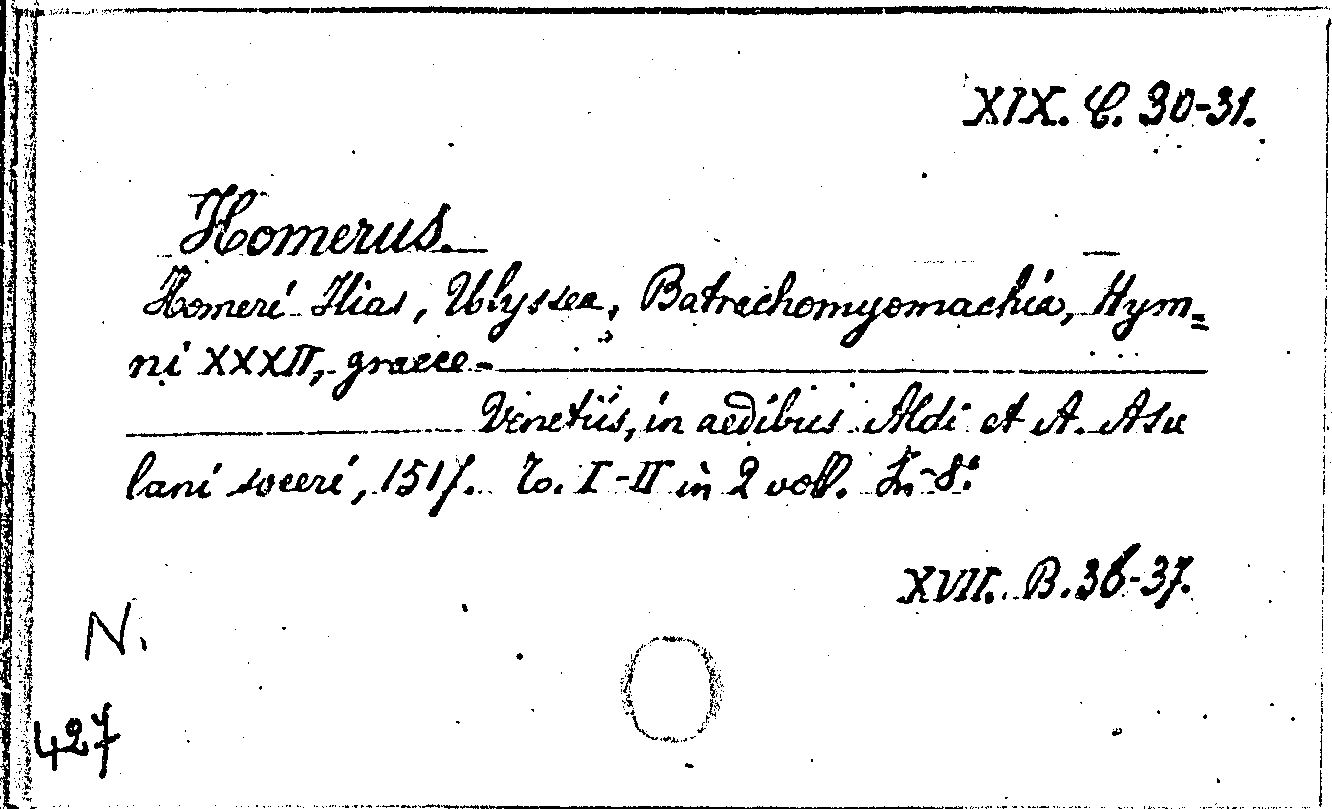 XIX. C. 30-31.
Homerus.
Homeri Ilias, Ulyssea, Batrachomyomachia, Hym=
ni XXXII, graece -
Venetiis, in aedibus Aldi et A. Asu
lani soceri, 1517. To. I-II in 2 voll. In-8°.
XVII. B. 36-37.
N.
427